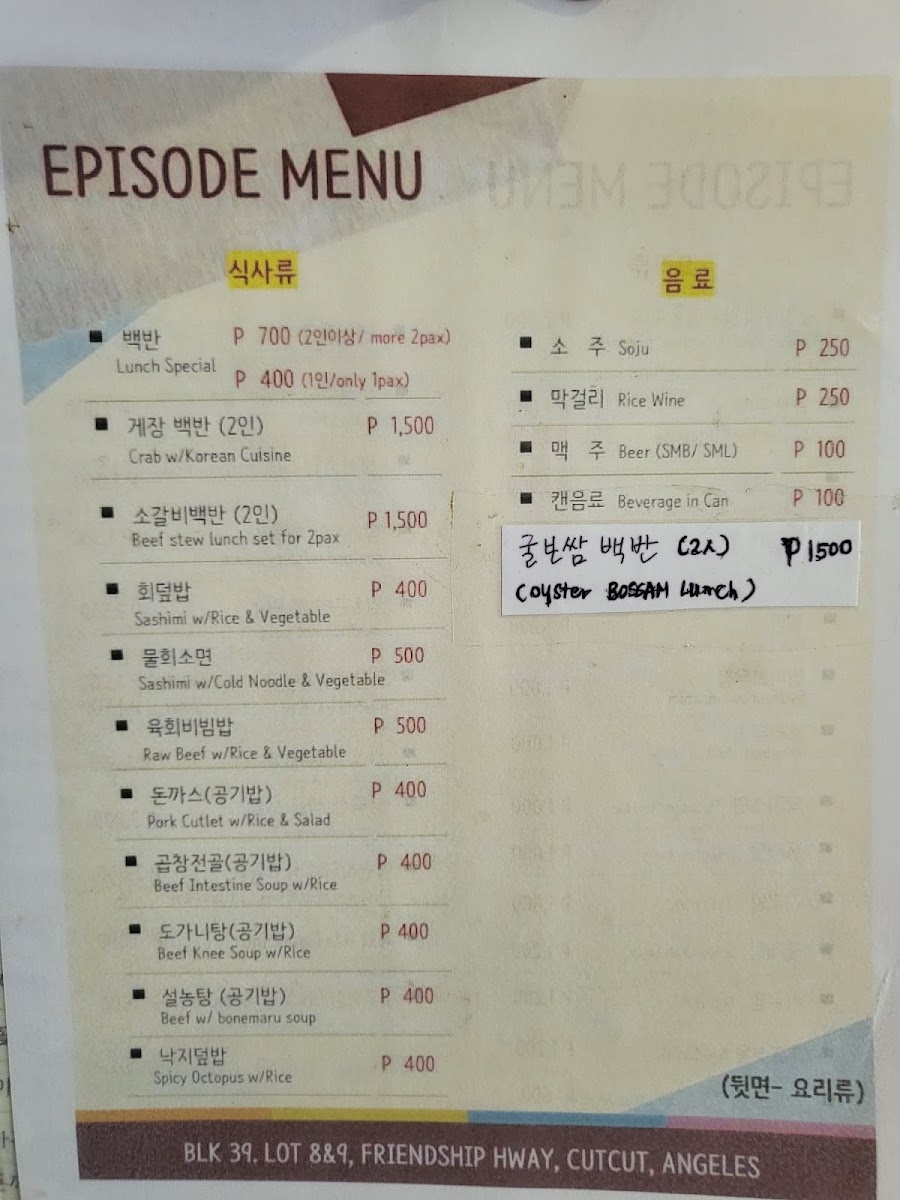 EPISODE MENU
식사류
■ 백반 P 700 (2인이상/ more 2pax)
Lunch Special P 400 (1인/only 1pax)
■ 게장 백반 (2인) P 1,500
Crab w/Korean Cuisine
■ 소갈비백반 (2인) P 1,500
Beef stew lunch set for 2pax
■ 회덮밥 P 400
Sashimi w/Rice & Vegetable
■ 물회소면 P 500
Sashimi w/Cold Noodle & Vegetable
■ 육회비빔밥 P 500
Raw Beef w/Rice & Vegetable
■ 돈까스(공기밥) P 400
Pork Cutlet w/Rice & Salad
■ 곱창전골(공기밥) P 400
Beef Intestine Soup w/Rice
■ 도가니탕(공기밥) P 400
Beef Knee Soup w/Rice
■ 설농탕 (공기밥) P 400
Beef w/ bonemaru soup
■ 낙지덮밥 P 400
Spicy Octopus w/Rice
음료
■ 소 주 Soju P 250
■ 막걸리 Rice Wine P 250
■ 맥 주 Beer (SMB/ SML) P 100
■ 캔음료 Beverage in Can P 100
굴보쌈 백반 (2人) ₱1500
(oyster BOSSAM Lunch)
(뒷면- 요리류)
BLK 39. LOT 8&9, FRIENDSHIP HWAY, CUTCUT, ANGELES